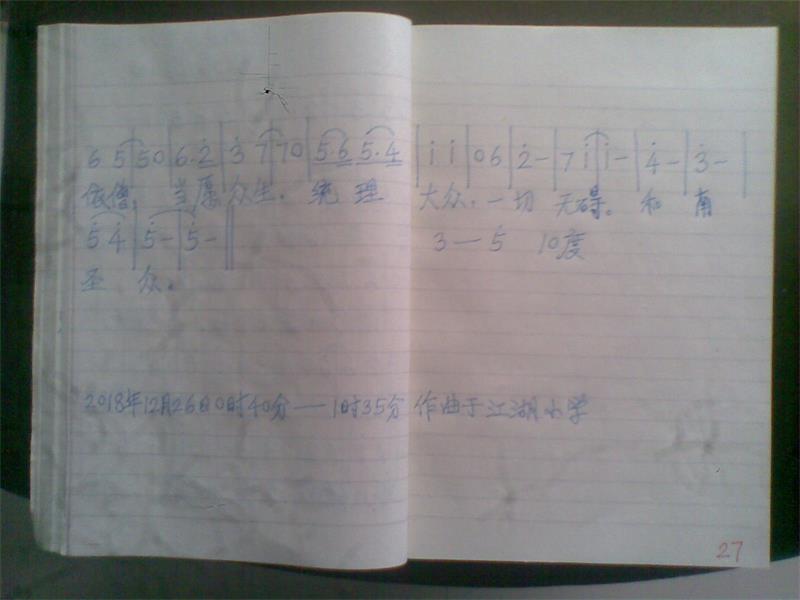 6 5 | 5 0 | 6. 2̇ | 3̇ 7 | 7 0 | 5. 6 5. 4̇ | i̇ i̇ | 0 6 | 2̇ - | 7 i̇ | i̇ - | 4̇ - | 3̇ - |
依僧，当愿众生，统理大众，一切无碍。和南
5̇ 4̇ | 5̇ - | 5̇ - ‖ 3 — 5̇ 10度
圣众。
2018年12月26日0时40分——1时35分 作曲于江湖小学
27